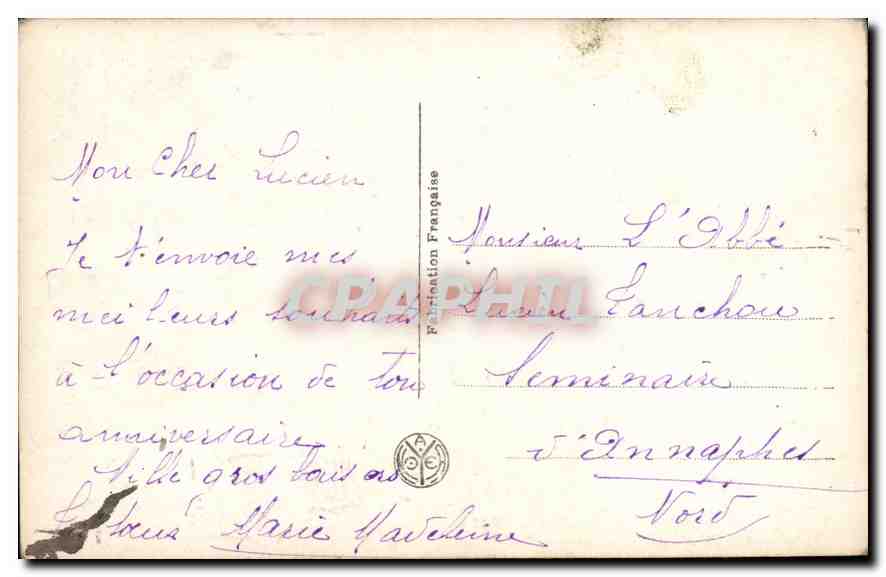 Mon Cher Lucien
Je t'envoie mes
meilleurs souhaits
à l'occasion de ton
anniversaire
Mille gros baisers
Ta sœur Marie Madeleine
Fabrication Française
CPAPHIL
Monsieur L'Abbé
Lucien Tanchou
Seminaire
d'Annaphes
Nord